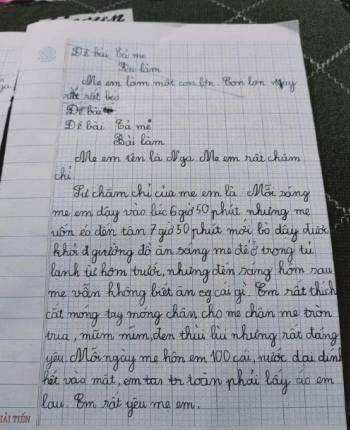 Đề bài Tả mẹ
Bài làm
Mẹ em làm một con lợn. Con lợn này
rất rất béo
Đề bài
Đề bài Tả mẹ
Bài làm
Mẹ em tên là Nga. Mẹ em rất chăm
chỉ.
Sự chăm chỉ của mẹ em là. Mỗi sáng
mẹ em dậy vào lúc 6 giờ 50 phút nhưng mẹ
uốn éo đến tận 7 giờ 50 phút mới bò dậy được
khỏi giường đồ ăn sáng mẹ để ở trong tủ
lạnh từ hôm trước, nhưng đến sáng hôm sau
mẹ vẫn không biết ăn cái gì. Em rất thích
cắt móng tay móng chân cho mẹ chân mẹ tròn
trùa, mũm mĩm, đen thùi lùi nhưng rất đáng
yêu. Mỗi ngày mẹ hôn em 100 cái, nước dại dính
hết vào mặt, em toàn phải lấy áo em
lau. Em rất yêu mẹ em.
GIẢI TIẾN